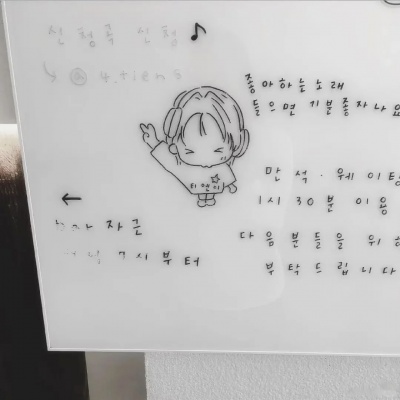 신청곡 신청♪
↳ @ 4.tien5
좋아하는 노래
들으면 기분좋자나요
티앤미
만석·웨이팅
←
1시 30분 이용
자른
다음 분들을 위
7시부터
부탁드립니다